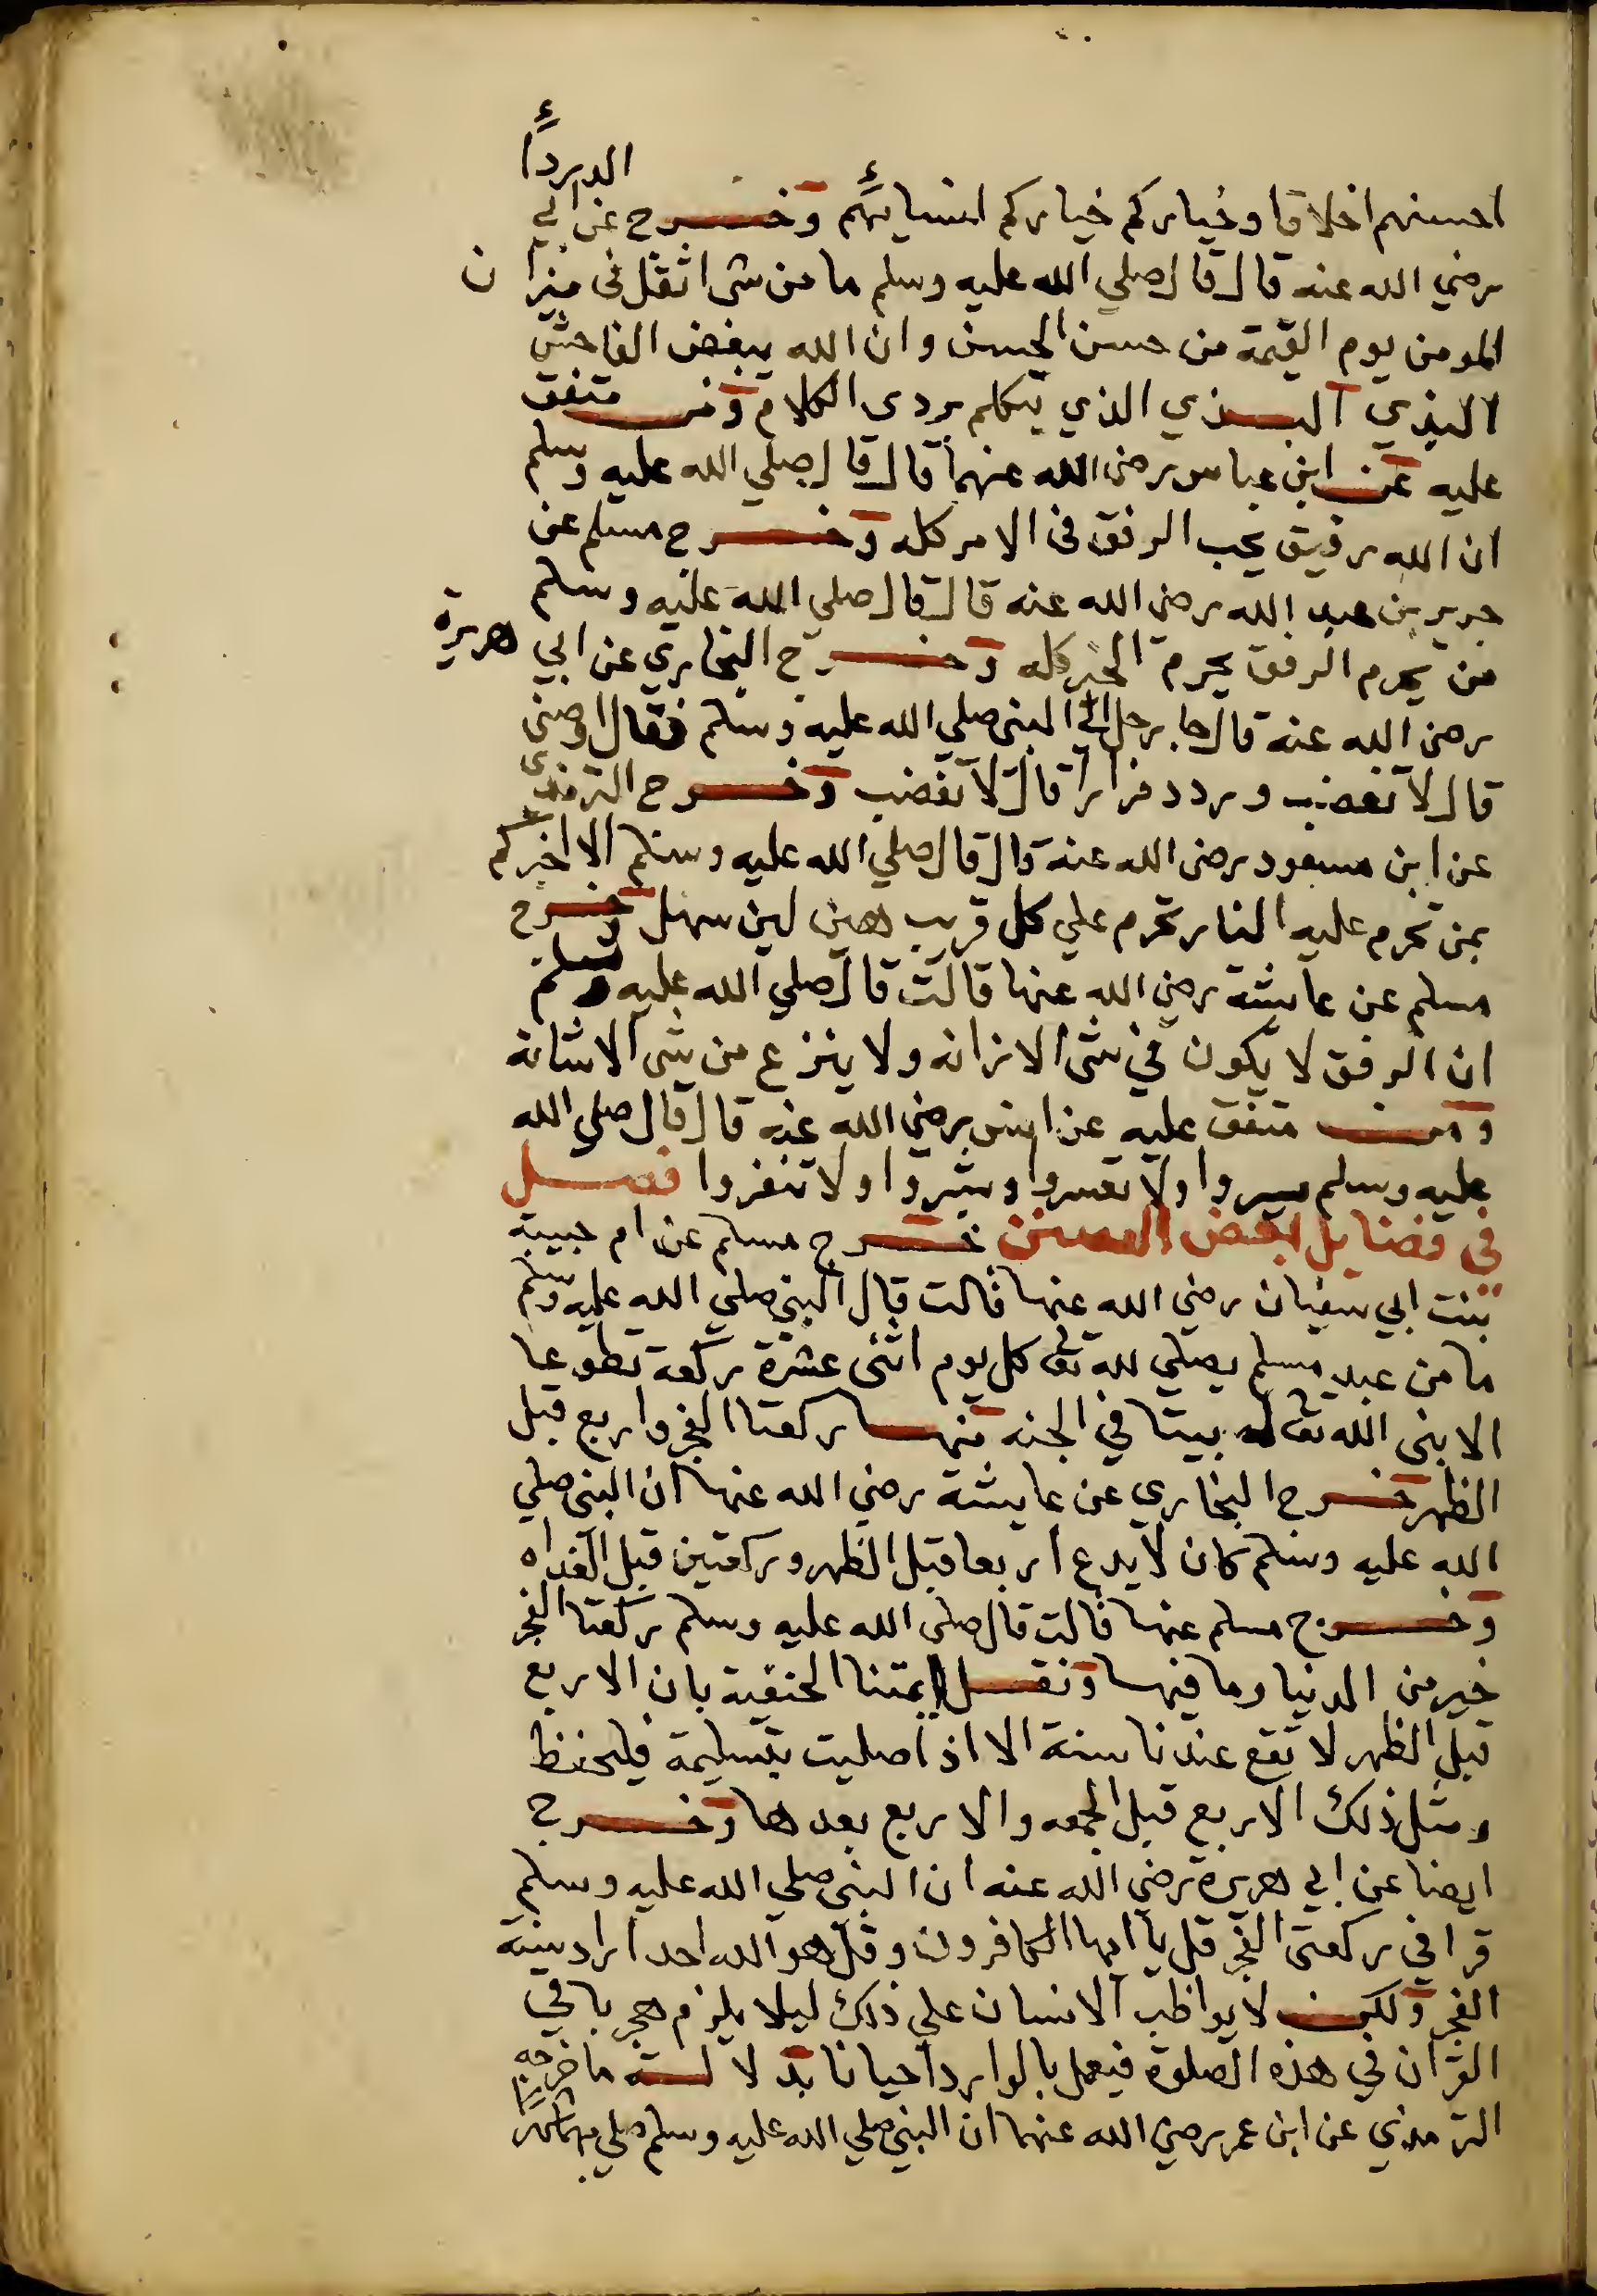 احسنهم اخلاقا وخياركم خياركم لنسايهم وخرج عن ابي الدرداء
رضي الله عنه قال قال صلي الله عليه وسلم ما من شى اثقل فى ميزان
المومن يوم القيمة من حسن الحسن وان الله يبغض الفاحش
البذي البذي الذي يتكلم بردى الكلام ومن متفق
عليه عن ابن عباس رضى الله عنهما قال قال صلي الله عليه وسلم
ان الله رفيق يحب الرفق فى الامر كله وخرج مسلم عن
جرير بن عبد الله رضى الله عنه قال قال صلي الله عليه وسلم
من يحرم الرفق يحرم الخير كله وخرج البخاري عن ابي هريرة
رضى الله عنه قال جا رجل الي النبى صلي الله عليه وسلم فقال اوصنى
قال لا تغضب وردد مرارا قال لا تغضب وخرج الترمذى
عن ابن مسعود رضى الله عنه قال قال صلي الله عليه وسلم الا اخبركم
بمن تحرم عليه النار تحرم علي كل قريب هين لين سهل وخرج
مسلم عن عايشة رضي الله عنها قالت قال صلي الله عليه وسلم
ان الرفق لا يكون في شى الا زانه ولا ينزع من شى الا شانه
ومن متفق عليه عن انس رضي الله عنه قال قال صلي الله
عليه وسلم يسروا ولا تعسروا وبشروا ولا تنفروا فصل
في فضايل بعض السنن خرج مسلم عن ام حبيبة
بنت ابي سفيان رضي الله عنها قالت قال النبي صلي الله عليه وسلم
ما من عبد مسلم يصلي لله تعا كل يوم اثنى عشرة ركعة تطوعا
الا بنى الله تعا له بيتا في الجنه منها ركعتا الفجر واربع قبل
الظهر خرج البخاري عن عايشة رضي الله عنها ان النبى صلي
الله عليه وسلم كان لا يدع اربعا قبل الظهر وركعتين قبل الغداه
وخرج مسلم عنها قالت قال صلى الله عليه وسلم ركعتا الفجر
خير من الدنيا وما فيها ونقل ايمتنا الحنفية بان الاربع
قبل الظهر لا تقع عندنا سنة الا اذا صليت بتسليمة فليحفظ
ومثل ذلك الاربع قبل الجمعه والاربع بعدها وخرج
ايضا عن ابي هريرة رضي الله عنه ان النبى صلي الله عليه وسلم
قرا في ركعتى الفجر قل يا ايها الكافرون وقل هو الله احد اراد سنة
الفجر ولكن لا يواظب الانسان علي ذلك ليلا يلزم هجر باقي
القران في هذه الصلوة فيعمل بالوارد احيانا بدلالة ما خرجه
الترمذي عن ابن عمر رضي الله عنهما ان النبي صلي الله عليه وسلم صلي بهما شهرا